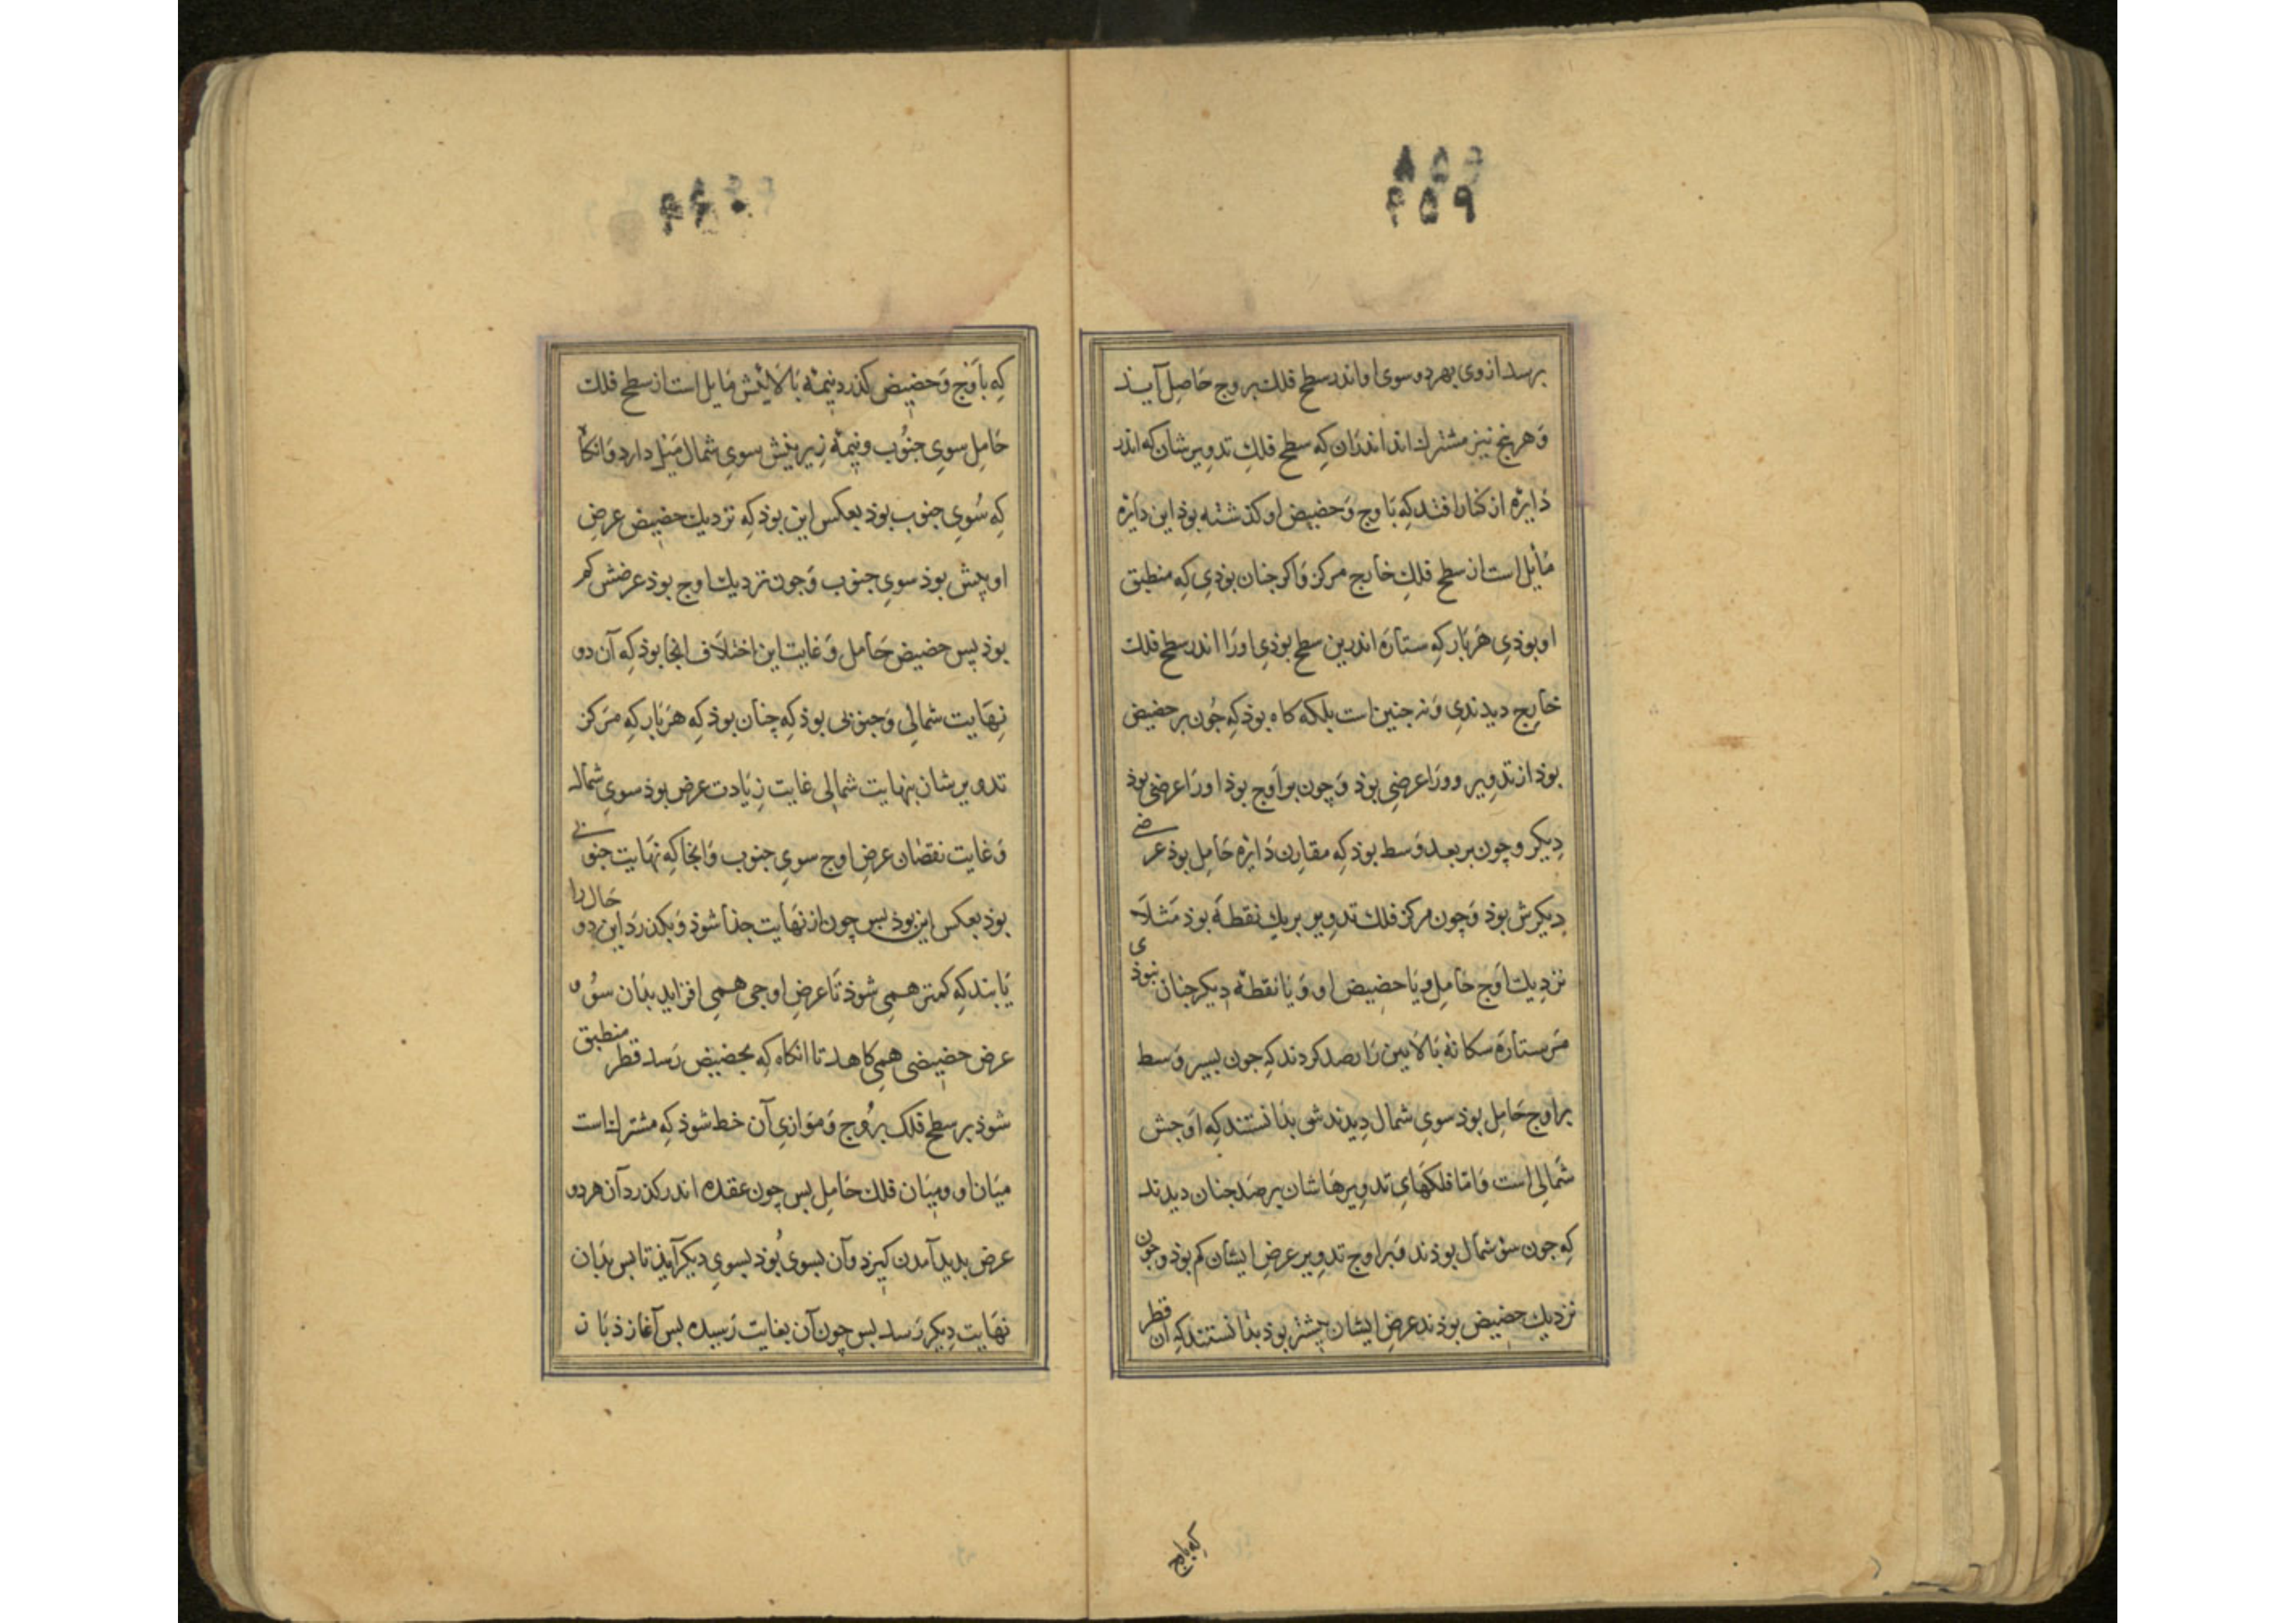 ۴۵۸
۴۵۹
برسد از وی بهر دو سوی او اندر سطح فلک بروج حاصل آیند
وَ هر پنج نیز مشترک اند اندران کِه سطح فلکِ تدویرشان که اندر
دَایرَه از کنارا فتد کِه بَاوج وَ حضیض او کذشته بوذ این دَایرَه
مَایل است از سطح فلکِ خَارج مرکز وَ اکر جنان بوذیِ کِه منطبق
او بوذیِ هَر بَار کِه ستارَه اندرین سطح بوذیِ او رَا اندر سطح فلک
خَارج دیدندیِ وَ نه جنین است بلکه کاه بوذ کِه جُون بر حضیض
بوذ از تدویر و ورَا عرضیِ بوذ وَ چون بر اَوج بوذ او رَا عرضی بوذ
دِیکر و چون بر بعد وَسط بوذ کِه مقارِن دَایرَه حَامِل بوذ عرضی
دِیکرش بوذ وَ چون مرکز فلک تدویر بر یکِ نقطَه بوذ مَثلَا
نزدِیک اَوجَ حَامِل وَ یَا حضیضِ او وَ یَا نقطَهٔ دِیکر جنان نبوذی
مَر ستارَه سکانهٔ بَالَایین رَا رصد کردند کِه جون بسیر وَسط
بر اوج حَامِل بوذ سویِ شمال دِیدندش بذَانستند کِه اَوجش
شَمالی است وَ امّا فلکهَایِ تدویِرهَاشان برصَد جنان دیدند
کِه جون سوْ شمال بوذند وَ بر اوج تدوِیر عرضِ ایشان کم بوذ و جون
نزدیک حضِیض بوذند عرضِ ایشان بیشتر بوذ بذَانستند کِه ان قطر
که باوج
۴۶۰
کِه باَوج وَ حضِیض کذرد نیمَهٔ بَالَایِیْش مَایل است از سطح فلک
حَامِل سویِ جنُوب و نیمهٔ زِیرِینِش سویِ شمال مَیْل دارد وَ انکَا
کِه سُویِ جنوب بوذ بعکس این بوذ کِه نزدیک حضِیض عرضِ
او بیش بوذ سویِ جنوب وَ جون نزدیک اوج بوذ عرضش کم
بوذ پس حضیض حَامل وَ غایت این اختلَاف انجا بوذ کِه آن دو
نِهَایت شمالیِ وَ جنوبی بوذ کِه چنان بوذ کِه هَر بَار کِه مَرکز
تدویرشان بنهایت شمالی غایت زِیَادت عرض بوذ سویِ شمال
وَ غایت نقصَان عرضِ اوج سویِ جنوب وَ انجا کِه نهَایت جنوبی
بوذ بعکس این بوذ بس چون از نهَایت جذَا شوذ وَ بکذرَد این دو حَال را
یَابند کِه کمتر همیِ شوذ تَا عرضِ اوجی همیِ افزاید بذَان سوُ و
عرض حضِیضی همیِ کاهد تا انکاه کِه بحضیض رَسد قطر منطبق
شوذ بر سطح فلک برُوج وَ مَوَازیِ آن خط شوذ کِه مشترک است
میَان او و مِیَان فلک حَامِل بس چون عقده اندر کذرد آن هر دو
عرض بدید آمدن کیرَد و آن بسوی بُوذ بسویِ دیکر آیذ تا بس بذَان
نهَایت دِیکر رَسد بس چون آن بغایت رَسِیده بس آغاز ذ بَا ز